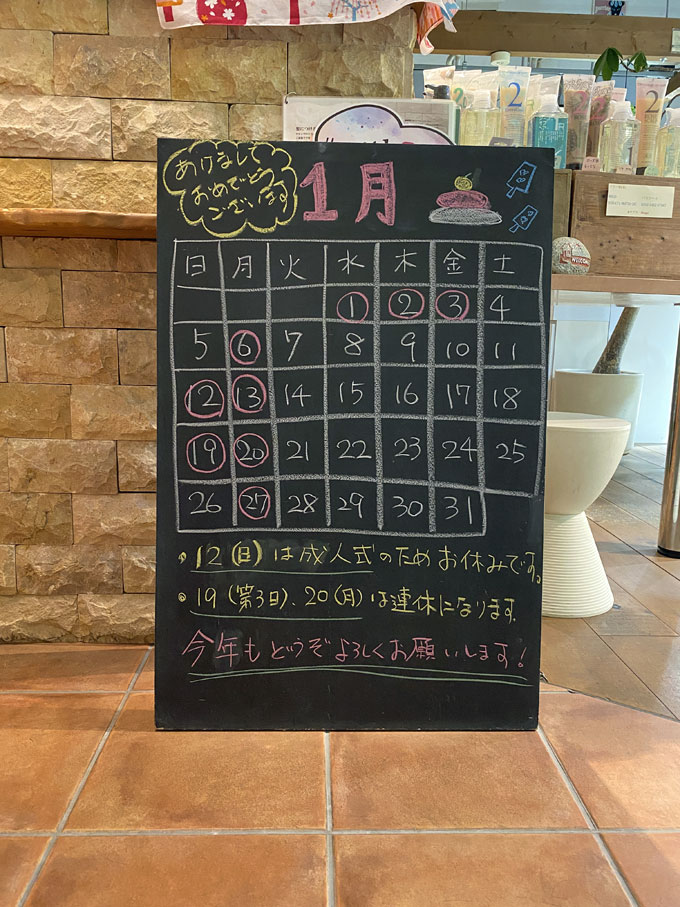 あけまして
おめでとう
ございます
1月
日 月 火 水 木 金 土
1 2 3 4
5 6 7 8 9 10 11
12 13 14 15 16 17 18
19 20 21 22 23 24 25
26 27 28 29 30 31
・12(日)は成人式のためお休みです。
・19(第3日)、20(月)は連休になります。
今年もどうぞよろしくお願いします!
2
2
2